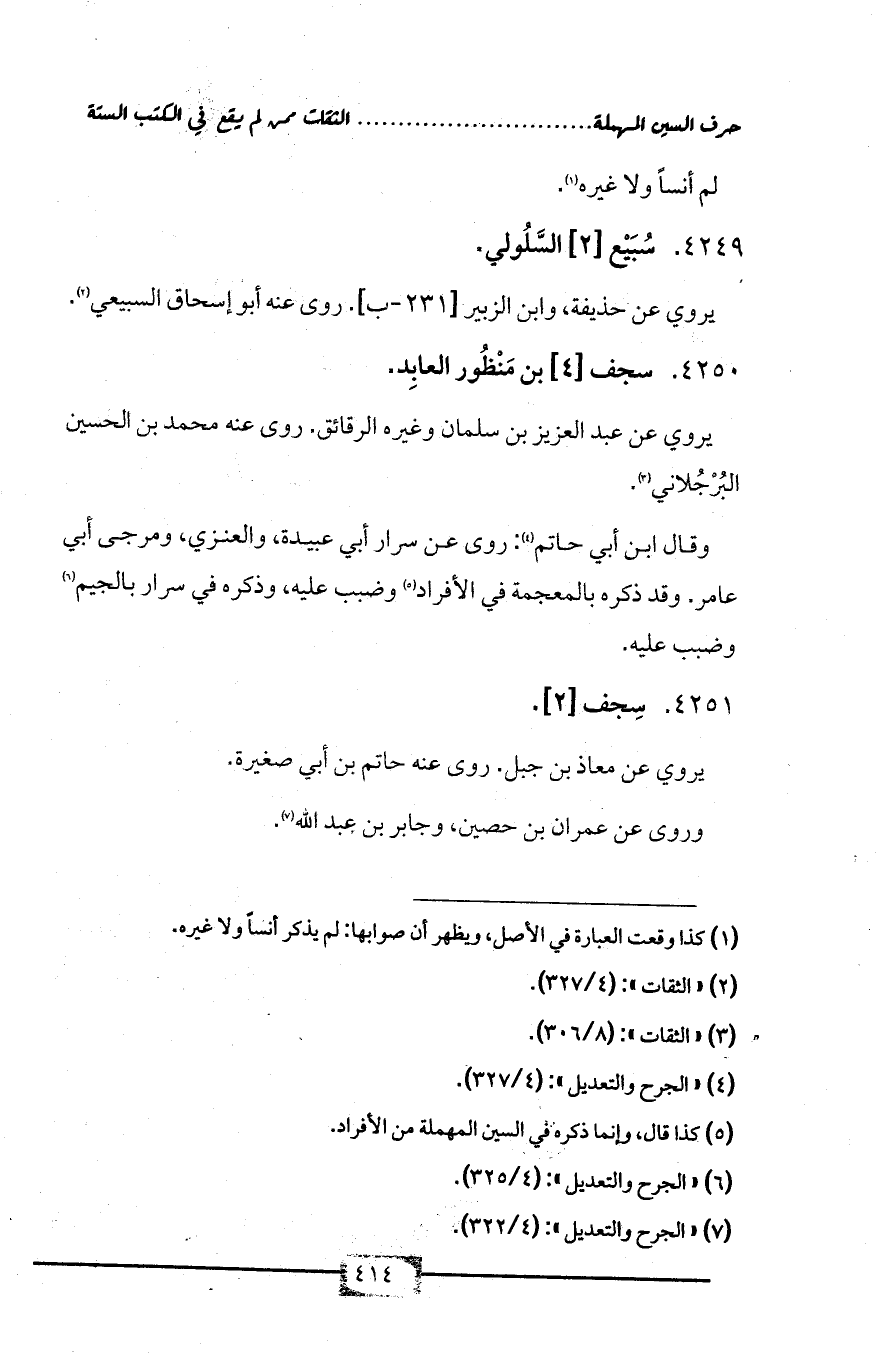 حرف السين المهملة............................ الثقات ممن لم يقع في الكتب الستة
لم أنساً ولا غيره(١).
٤٢٤٩. سُبَيْع [٢] السَّلُولي.
يروي عن حذيفة، وابن الزبير [٢٣١-ب]. روى عنه أبو إسحاق السبيعي(٢).
٤٢٥٠. سجف [٤] بن مَنْظُور العابِد.
يروي عن عبد العزيز بن سلمان وغيره الرقائق. روى عنه محمد بن الحسين
البُرْجُلاني(٣).
وقال ابن أبي حاتم(٤): روى عن سرار أبي عبيدة، والعنزي، ومرجى أبي
عامر. وقد ذكره بالمعجمة في الأفراد(٥) وضبب عليه، وذكره في سرار بالجيم(٦)
وضبب عليه.
٤٢٥١. سِجف [٢].
يروي عن معاذ بن جبل. روى عنه حاتم بن أبي صغيرة.
وروى عن عمران بن حصين، وجابر بن عبد الله(٧).
(١) كذا وقعت العبارة في الأصل، ويظهر أن صوابها: لم يذكر أنساً ولا غيره.
(٢) «الثقات»: (٤/ ٣٢٧).
(٣) «الثقات»: (٨/ ٣٠٦).
(٤) «الجرح والتعديل»: (٤/ ٣٢٧).
(٥) كذا قال، وإنما ذكره في السين المهملة من الأفراد.
(٦) «الجرح والتعديل»: (٤/ ٣٢٥).
(٧) «الجرح والتعديل»: (٤/ ٣٢٢).
٤١٤